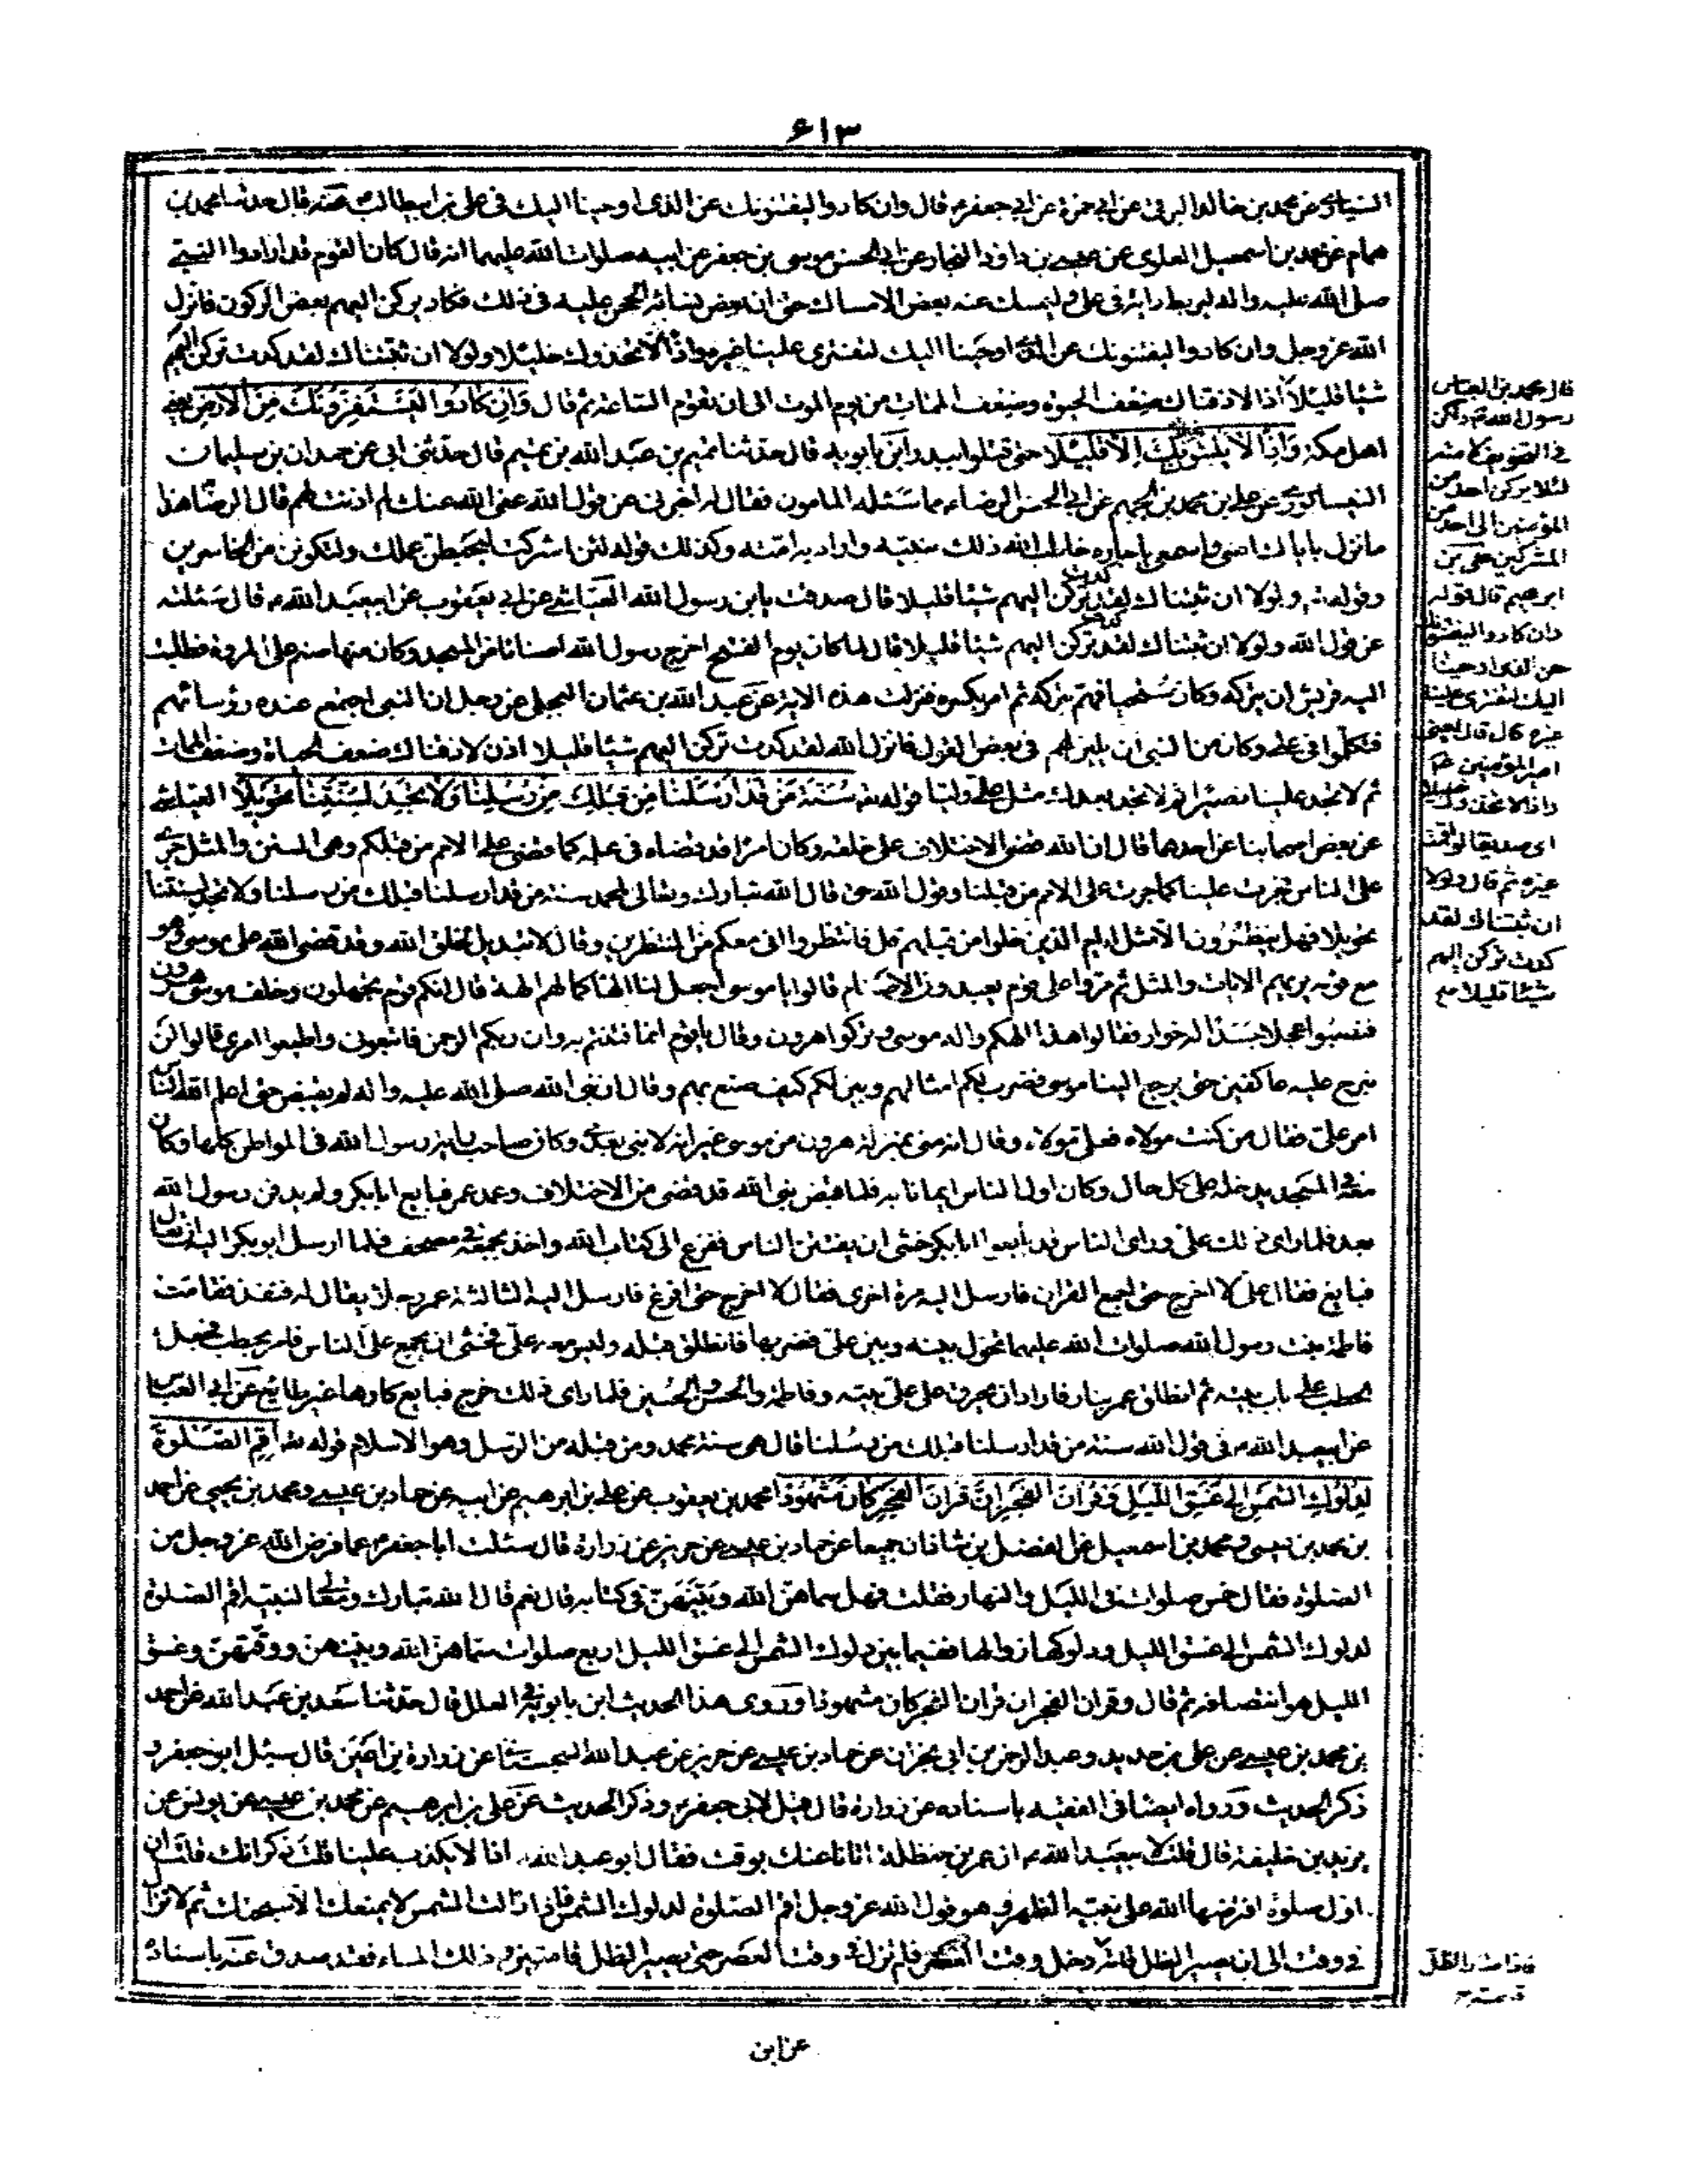 ٦١٣
السياري عن محمد بن خالد البرقي عن ابي حمزة عن ابي جعفر ع قال وان كادوا ليفتنونك عن الذي اوحينا اليك في علي بن ابيطالب عنه قال حدثنا محمد بن
همام عن محمد بن اسمعيل العلوي عن عيسى بن داود النجار عن ابي الحسن موسى بن جعفر عن ابيه صلوات الله عليهما انه قال كان القوم قد ارادوا النبي
صلى الله عليه واله ليربط رايه في علي وليمسك عنه بعض الامساك حتى ان بعض نسائه الححن عليه في ذلك فكاد يركن اليهم بعض الركون فانزل
الله عز وجل وان كادوا ليفتنونك عن الذي اوحينا اليك لتفترى علينا غيره واذا لاتخذوك خليلا ولولا ان ثبتناك لقد كدت تركن اليهم
شيئا قليلا اذا لاذقناك ضعف الحيوة وضعف الممات من يوم الموت الى ان تقوم الساعة ثم قال وَاِن كَادُوا لَيَسْتَفِزُّونَكَ مِنَ الْاَرْضِ يعني
اهل مكة وَاِذًا لَا يَلْبَثُونَ اِلَّا قَلِيلًا حتى قتلوا ببدر ابن بابويه قال حدثنا تميم بن عبد الله بن تميم قال حدثني ابي عن حمدان بن سليمان
النيسابوري عن علي بن محمد بن الجهم عن ابي الحسن الرضاء مما سئله المامون فقال له اخبرني عن قول الله عفى الله عنك لم اذنت لهم قال الرضا هذا
مما نزل باياك اعني واسمعي يا جاره خاطب الله ذلك نبيه واراد به امته وكذلك قوله لئن اشركت ليحبطن عملك ولتكونن من الخاسرين
وقوله تع ولولا ان ثبتناك لقد كدت تركن اليهم شيئا قليلا قال صدقت يا ابن رسول الله العياشي عن ابي يعقوب عن ابيعبد الله ع قال سئلته
عن قول الله ولولا ان ثبتناك لقد كدت تركن اليهم شيئا قليلا قال لما كان يوم الفتح اخرج رسول الله اصناما من المسجد وكان منها صنم على المروة فطلبت
اليه قريش ان يتركه وكان مستحييا فهم بتركه ثم امر بكسره فنزلت هذه الاية عن عبد الله بن عثمان البجلي عن رجل ان النبي اجتمع عنده رؤسائهم
فتكلموا في علي وكان من النبي ان يلين لهم في بعض القول فانزل الله لقد كدت تركن اليهم شيئا قليلا اذن لاذقناك ضعف الحياة وضعف الممات
ثم لا تجد علينا نصيرا ثم لا تجد بعدك مثل علي وليا قوله تع سُنَّةَ مَنْ قَدْ اَرْسَلْنَا مِنْ قَبْلِكَ مِنْ رُسُلِنَا وَلَا تَجِدُ لِسُنَّتِنَا تَحْوِيلًا العياشي
عن بعض اصحابنا عن احدهما قال ان الله قضى الاختلاف على خلقه وكان امرا قد قضاه في علمه كما قضى على الامم من قبلكم وهي السنن والامثال يجري
على الناس فجرت علينا كما جرت على الامم من قبلنا وقول الله حق قال الله تبارك وتعالى لمحمد سنة من قد ارسلنا قبلك من رسلنا ولا تجد لسنتنا
تحويلا فهل ينظرون الا مثل ايام الذين خلوا من قبلهم قل فانتظروا اني معكم من المنتظرين وقال لا تبديل لخلق الله وقد قضى الله على موسى وهو
مع قومه يريهم الايات والمثل ثم مروا على قوم يعبدون الاصنام قالوا يا موسى اجعل لنا الها كما لهم الهة قال انكم قوم تجهلون وخلف موسى هرون
فنصبوا عجلا جسدا له خوار فقالوا هذا الهكم واله موسى وتركوا هرون وقال يا قوم انما فتنتم به وان ربكم الرحمن فاتبعوني واطيعوا امري قالوا لن
نبرح عليه عاكفين حتى يرجع الينا موسى فضرب لكم امثالهم وبين لكم كيف صنع بهم وقال ان نبي الله صلى الله عليه واله لم يقبض حتى اعلم الناس
امر علي فقال من كنت مولاه فعلي مولاه وقال انه مني بمنزلة هرون من موسى غير انه لا نبي بعدي وكان صاحب راية رسول الله في المواطن كلها وكان
معه في المسجد يدخله على كل حال وكان اول الناس ايمانا به فلما قبض نبي الله قد قضى من الاختلاف وعمد عمر فبايع ابابكر ولم يدفن رسول الله
بعد فلما راى ذلك علي وراى الناس قد بايعوا ابابكر خشى ان يفتتن الناس ففزع الى كتاب الله واخذ يجمعه في مصحف فلما ارسل ابو بكر اليه ان تعال
فبايع فقال علي لا اخرج حتى اجمع القران فارسل اليه مرة اخرى فقال لا اخرج حتى افرغ فارسل اليه الثالثة عمر رجلا يقال له قنفذ فقامت
فاطمة بنت رسول الله صلوات الله عليهما تحول بينه وبين علي فضربها فانطلق قبله وليس معه علي فخشى ان يجمع علي الناس فامر بحطب فجعل
الحطب على باب بيته ثم انطلق عمر بنار فاراد ان يحرق على علي بيته وفاطمة والحسن والحسين فلما راى ذلك خرج فبايع كارها غير طايع عن ابي العباس
عن ابيعبد الله ع في قول الله سنة من قد ارسلنا قبلك من رسلنا قال هي سنة محمد ومن قبله من الرسل وهو الاسلام قوله تع اَقِمِ الصَّلٰوةَ
لِدُلُوكِ الشَّمْسِ اِلٰى غَسَقِ اللَّيْلِ وَقُرْاٰنَ الْفَجْرِ اِنَّ قُرْاٰنَ الْفَجْرِ كَانَ مَشْهُودًا محمد بن يعقوب عن علي بن ابرهيم عن ابيه عن حماد بن عيسى ومحمد بن يحيى عن احمد
بن محمد بن عيسى ومحمد بن اسمعيل عن الفضل بن شاذان جميعا عن حماد بن عيسى عن حريز عن زرارة قال سئلت ابا جعفر ع عما فرض الله عز وجل من
الصلوة فقال خمس صلوات في الليل والنهار فقلت فهل سماهن الله وبينهن في كتابه قال نعم قال الله تبارك وتعالى لنبيه اقم الصلوة
لدلوك الشمس الى غسق الليل ودلوكها زوالها ففيما بين دلوك الشمس الى غسق الليل اربع صلوات سماهن الله وبينهن ووقتهن وغسق
الليل هو انتصافه ثم قال وقران الفجر ان قران الفجر كان مشهودا وروى هذا الحديث ابن بابويه في العلل قال حدثنا سعد بن عبد الله عن احمد
بن محمد بن عيسى عن علي بن حديد وعبد الرحمن بن ابي نجران عن حماد بن عيسى عن حريز بن عبد الله السجستاني عن زرارة بن اعين قال سئل ابو جعفر و
ذكر الحديث ورواه ايضا في الفقيه باسناده عن زرارة قال قيل لابي جعفر ع وذكر الحديث عن علي بن ابرهيم عن محمد بن عيسى عن يونس عن
يزيد بن خليفة قال قلت لابيعبد الله ع ان عمر بن حنظلة اتانا عنك بوقت فقال ابو عبد الله ع اذا لا يكذب علينا قلت ذكر انك قلت ان
اول صلوة افترضها الله على نبيه الظهر وهو قول الله عز وجل اقم الصلوة لدلوك الشمس فاذا زالت الشمس لا يمنعك الا سبحتك ثم لا تزال
في وقت الى ان يصير الظل قامة دخل وقت العصر فلم تزل في وقت العصر حتى يصير الظل قامتين وذلك المساء فقد صدق عنه باسناده
قال محمد بن العباس
رسول الله ص ولكن
لئلا يركن احد من
المؤمنين الى احد من
المشركين علي بن
ابرهيم قال قوله
وان كادوا ليفتنونك
عن الذي اوحينا
اليك لتفترى علينا
غيره قال قال يعني
امير المؤمنين ع
واذا لاتخذوك خليلا
اى صديقا لو اقمت
غيره ثم قال ولولا
ان ثبتناك لقد
كدت تركن اليهم
شيئا قليلا مع
فاذا صار الظل
قامة
عن ابن